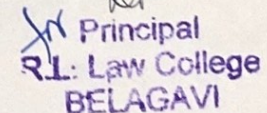 Principal
R.L. Law College
BELAGAVI